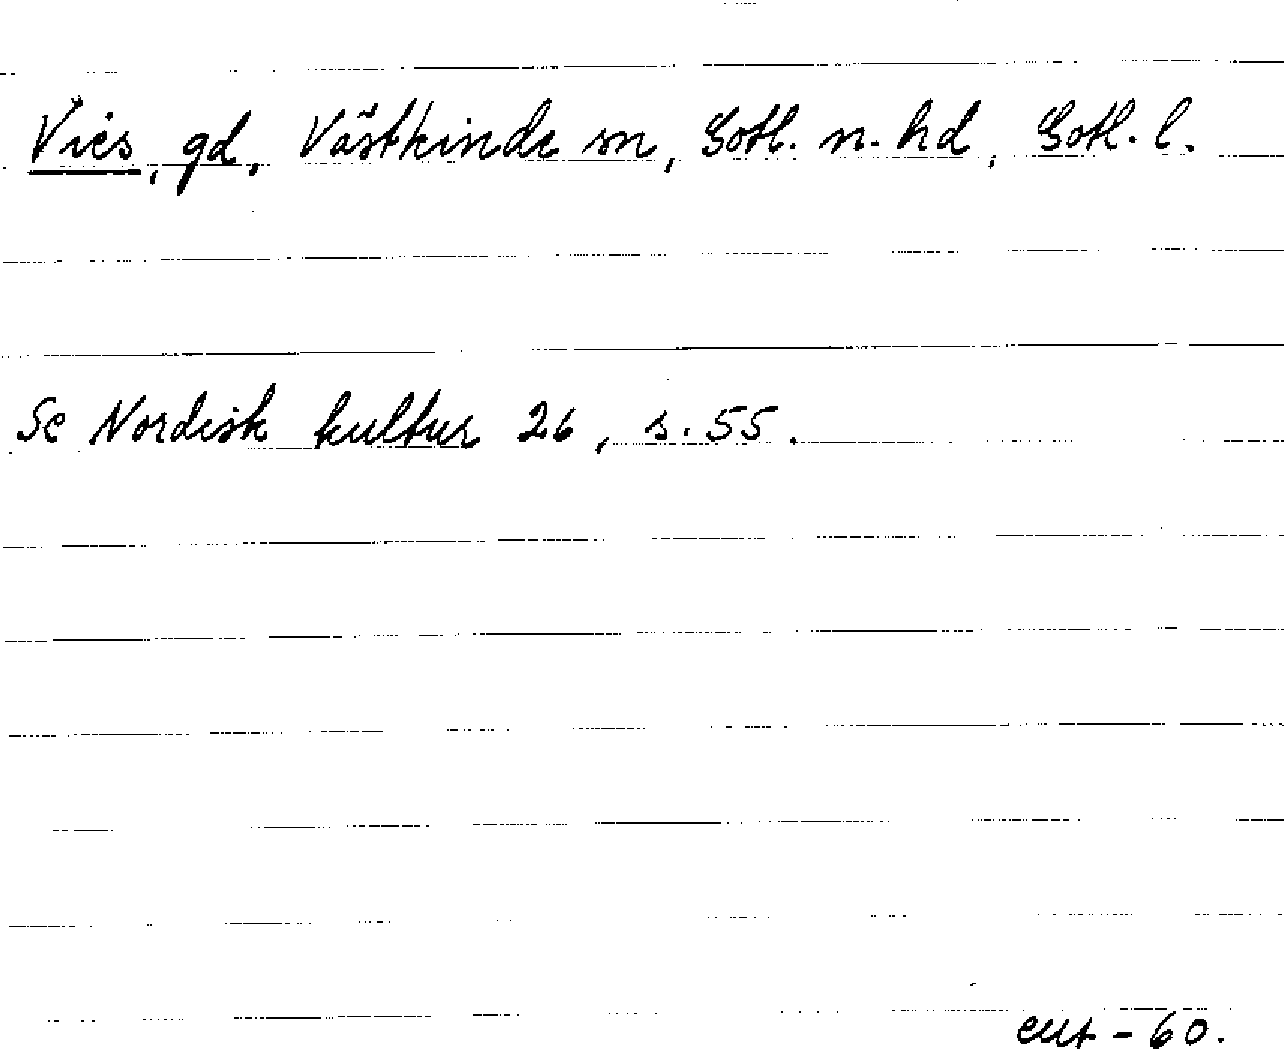 Viès, gd, Västkinde sn, Gotl. n. hd, Gotl. l.
Se Nordisk kultur 26, s. 55.
- 60.